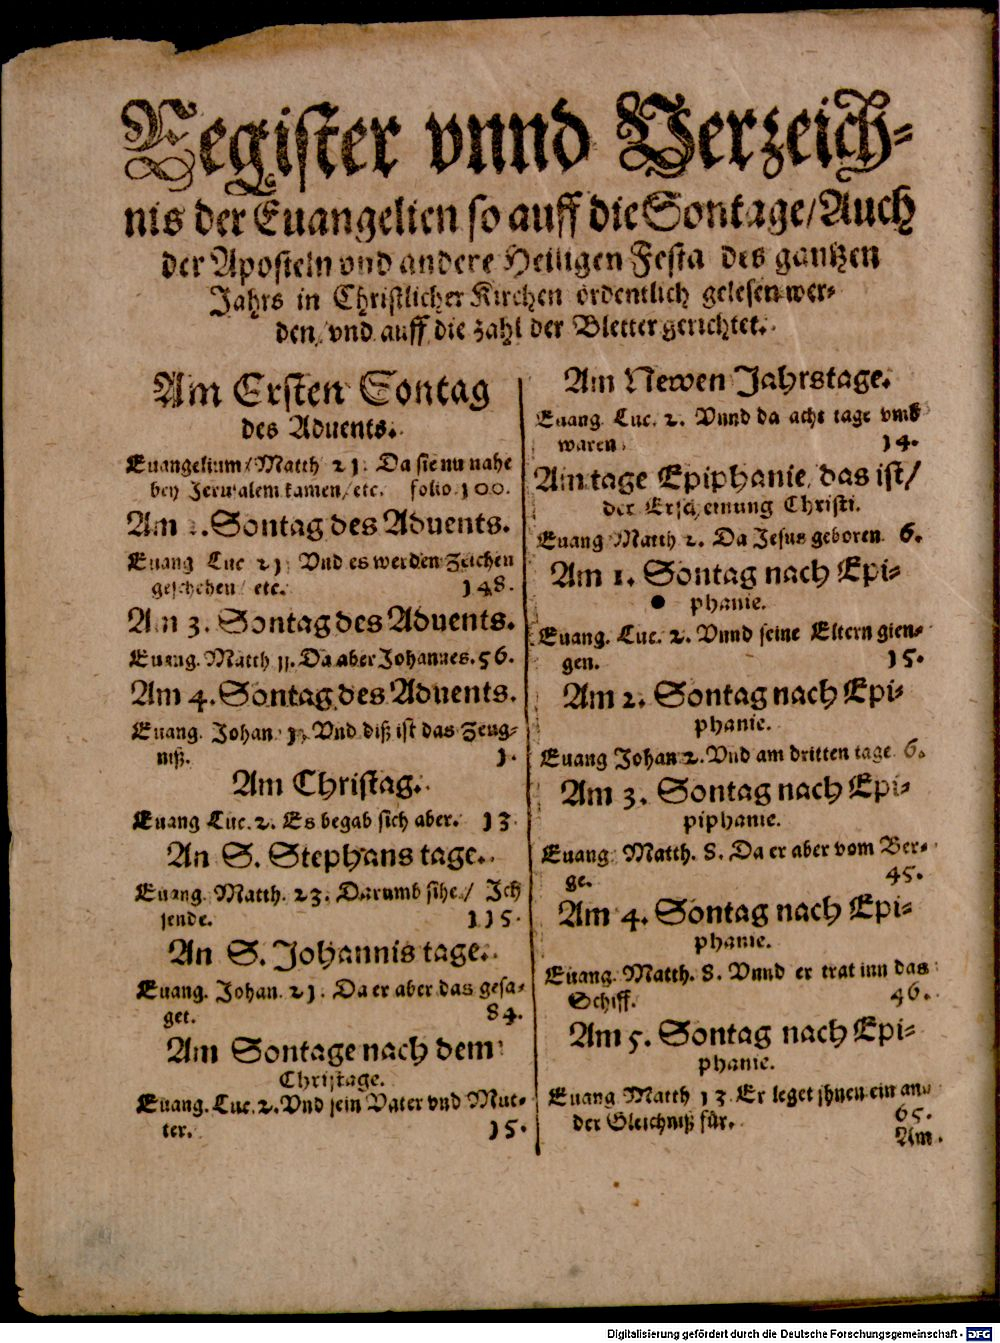 Register vnnd Verzeich-
nis der Euangelien so auff die Sontage/ Auch
der Aposteln vnd andere Heiligen Festa des gantzen
Jahrs in Christlicher Kirchen ordentlich gelesen wer-
den/ vnd auff die zahl der Bletter gerichtet.
Am Ersten Sontag
des Aduents.
Euangelium/ Matth 21. Da sie nu nahe
bey Jerusalem kamen/ etc. folio 100.
Am 2. Sontag des Aduents.
Euang Luc 21. Vnd es werden Zeichen
geschehen/ etc. 148.
Am 3. Sontag des Aduents.
Euang. Matth 11. Da aber Johannes. 56.
Am 4. Sontag des Aduents.
Euang. Johan 1. Vnd diß ist das Zeug-
niß. 1.
Am Christag.
Euang Luc. 2. Es begab sich aber. 13
An S. Stephans tage.
Euang. Matth. 23. Darumb sihe/ Ich
sende. 115.
An S. Johannis tage.
Euang. Johan. 21. Da er aber das gesa-
get. 84.
Am Sontage nach dem
Christage.
Euang. Luc. 2. Vnd sein Vater vnd Mut-
ter. 15.
Am Newen Jahrstage.
Euang. Luc. 2. Vnnd da acht tage vmb
waren. 14.
Am tage Epiphanie, das ist/
der Erscheinung Christi.
Euang Matth 2. Da Jesus geboren 6.
Am 1. Sontag nach Epi-
phanie.
Euang. Luc. 2. Vnnd seine Eltern gien-
gen. 15.
Am 2. Sontag nach Epi-
phanie.
Euang Johan 2. Vnd am dritten tage 6.
Am 3. Sontag nach Epi-
piphanie.
Euang. Matth. 8. Da er aber vom Ber-
ge. 45.
Am 4. Sontag nach Epi-
phanie.
Euang. Matth. 8. Vnnd er trat inn das
Schiff. 46.
Am 5. Sontag nach Epi-
phanie.
Euang Matth 13 Er leget jhnen ein an-
der Gleichniß für. 65.
Am
Digitalisierung gefördert durch die Deutsche Forschungsgemeinschaft - DFG